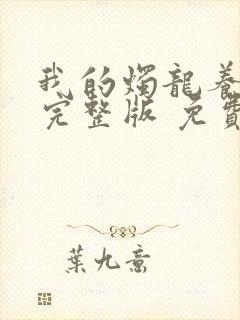 我的燭龍養
完整版 免費
葉九意